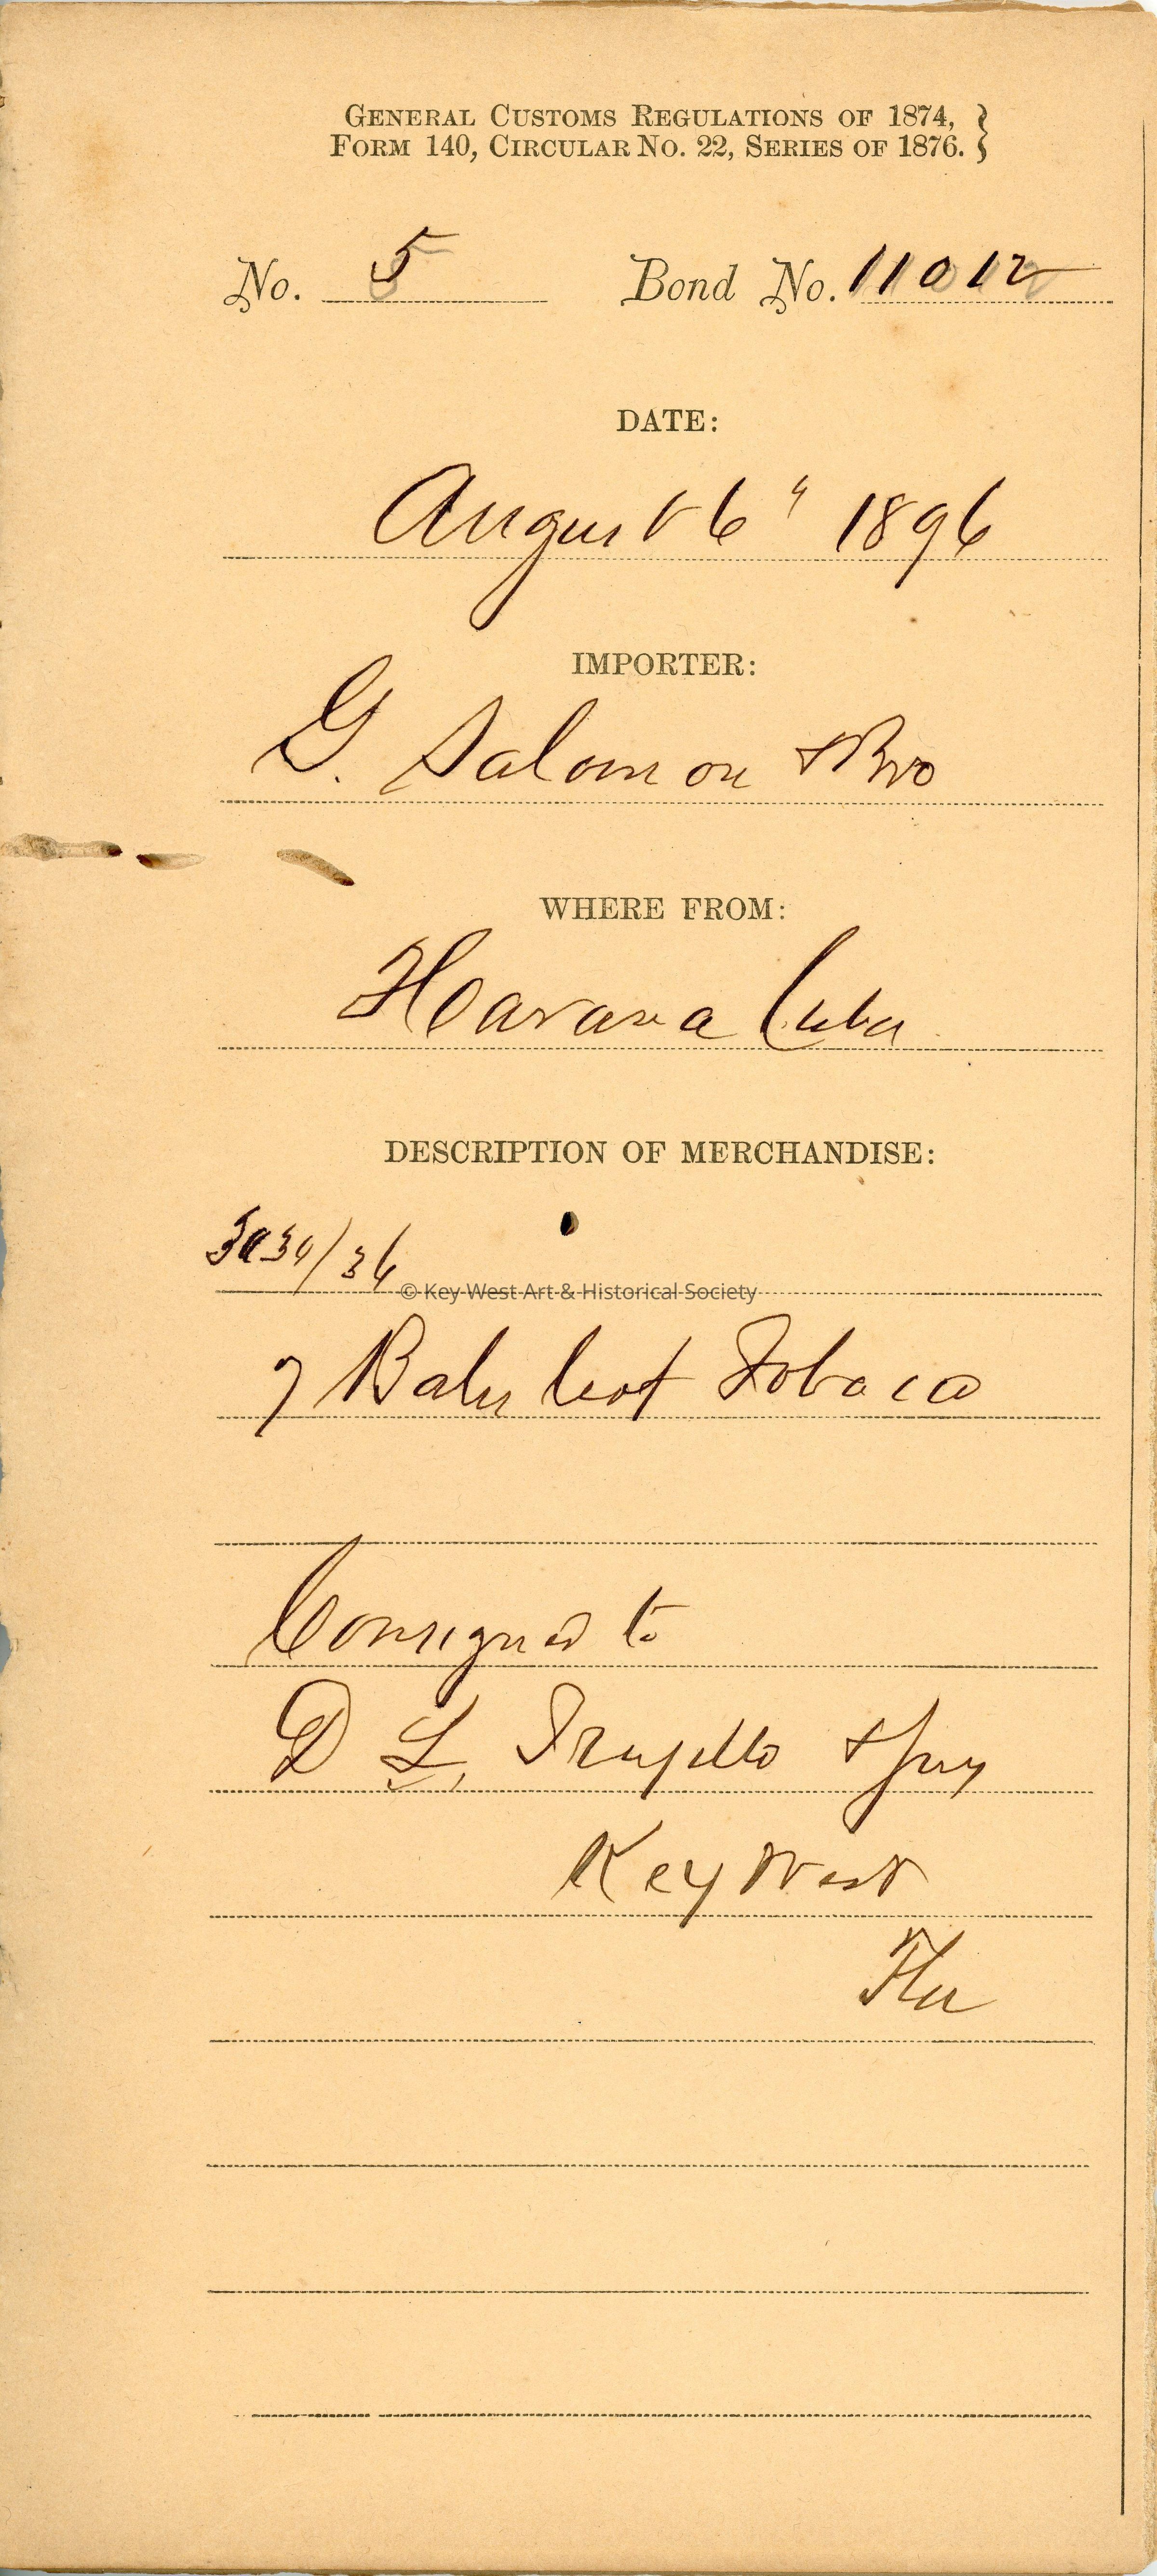 GENERAL CUSTOMS REGULATIONS OF 1874, }
FORM 140, CIRCULAR NO. 22, SERIES OF 1876. }
No. 5 Bond No. 11012
DATE:
August 6" 1896
IMPORTER:
G. Salomon & Bro
WHERE FROM:
Havana Cuba
DESCRIPTION OF MERCHANDISE:
3030/36
© Key West Art & Historical Society
7 Bales leaf Tobaco
Consigned to
D L. Trujillo &
Key West
Fla